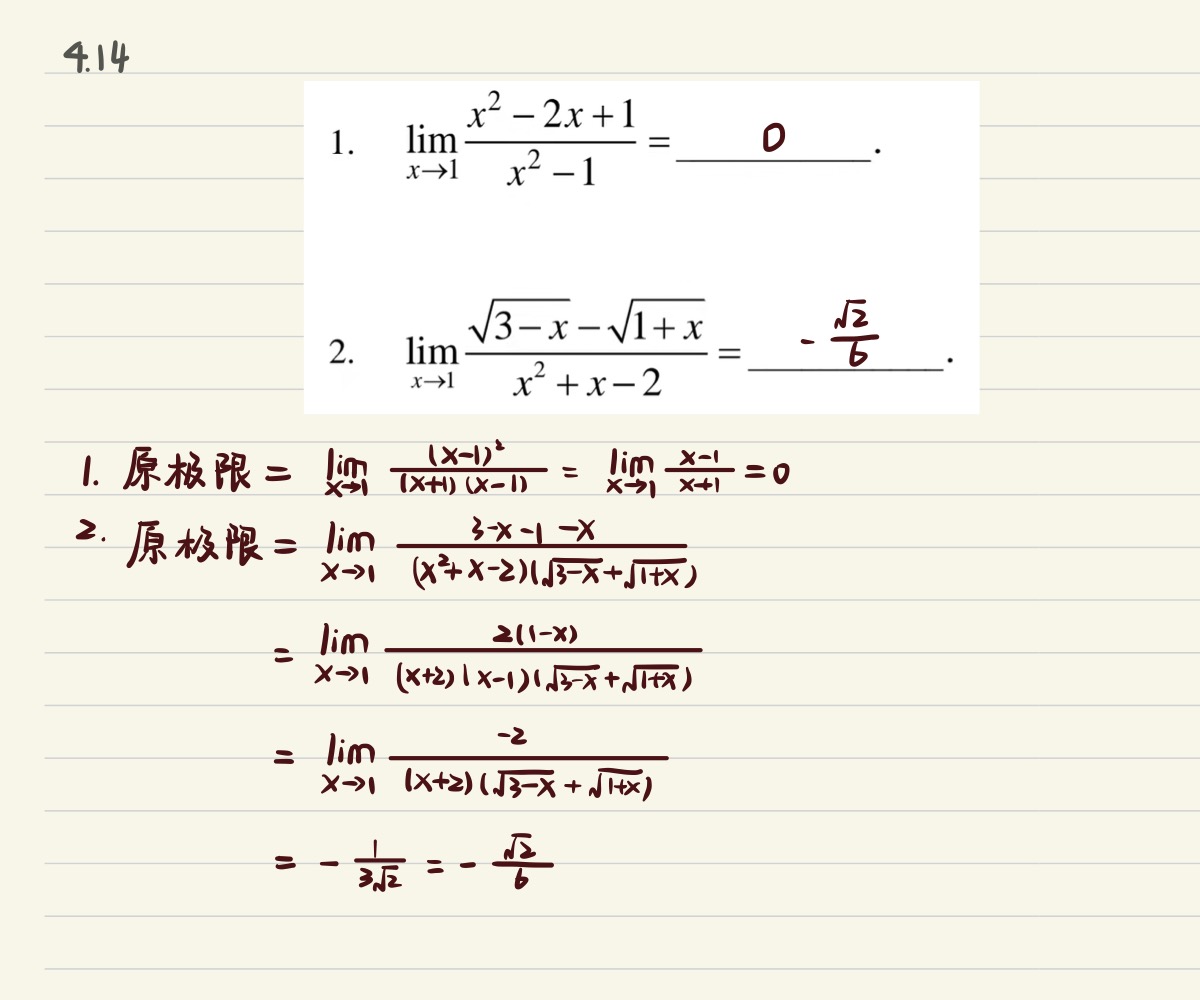 4.14
1. lim x→1 (x² − 2x + 1)/(x² − 1) = 0 .
2. lim x→1 (√(3−x) − √(1+x))/(x² + x − 2) = - √2/6 .
1. 原极限 = lim x→1 (x-1)²/((x+1)(x-1)) = lim x→1 (x-1)/(x+1) = 0
2. 原极限 = lim x→1 (3-x-1-x)/((x²+x-2)(√(3-x)+√(1+x)))
= lim x→1 2(1-x)/((x+2)(x-1)(√(3-x)+√(1+x)))
= lim x→1 -2/((x+2)(√(3-x)+√(1+x)))
= - 1/(3√2) = - √2/6